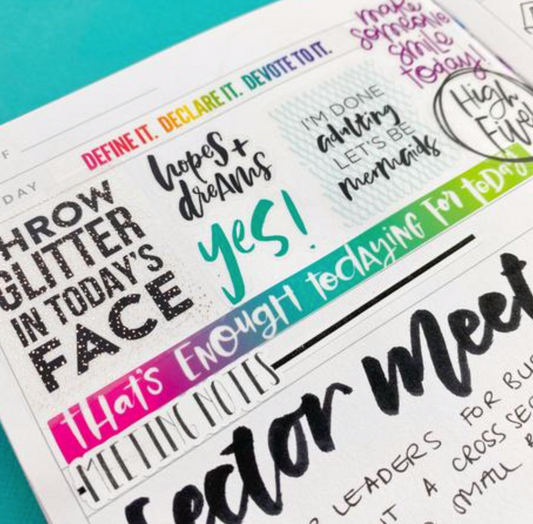 make
someone
smile
today!
DEFINE IT. DECLARE IT. DEVOTE TO IT.
F
DAY
THROW
GLITTER
IN TODAY'S
FACE
hopes +
dreams
yes!
I'M DONE
adulting
LET'S BE
mermaids
High
Five!
THAT'S ENOUGH TODAYING FOR TODAY
MEETING NOTES
Sector Meet
LEADERS FOR BUS
A CROSS SEC
SMALL B